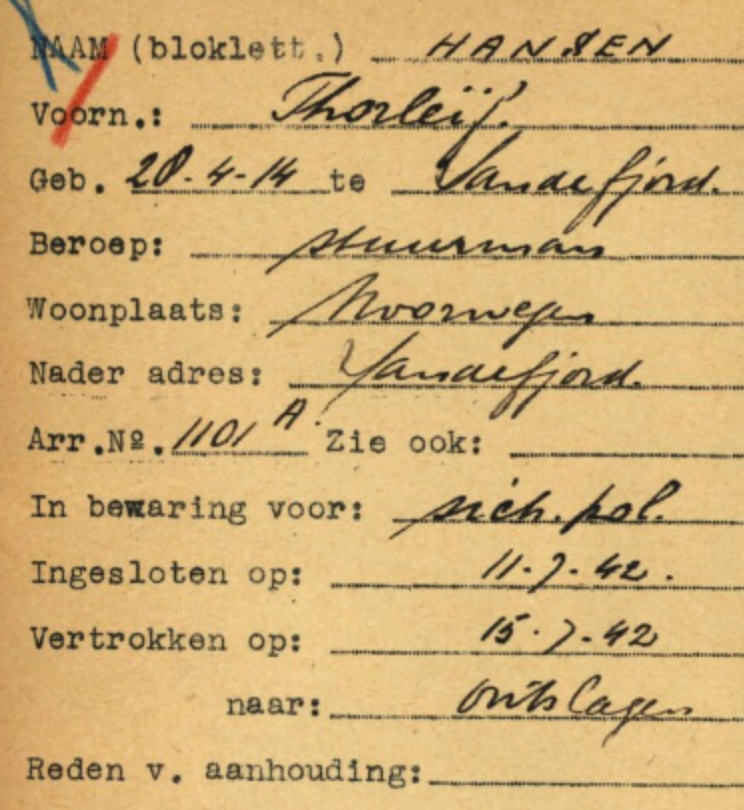 NAAM (bloklett.) HANSEN
Voorn.: Thorleif.
Geb. 28-4-14 te Sandefjord.
Beroep: stuurman
Woonplaats: Noorwegen
Nader adres: Sandefjord.
Arr.Nº. 1101 A. Zie ook:
In bewaring voor: sich. pol.
Ingesloten op: 11-7-42.
Vertrokken op: 15-7-42
naar: ontslagen
Reden v. aanhouding: